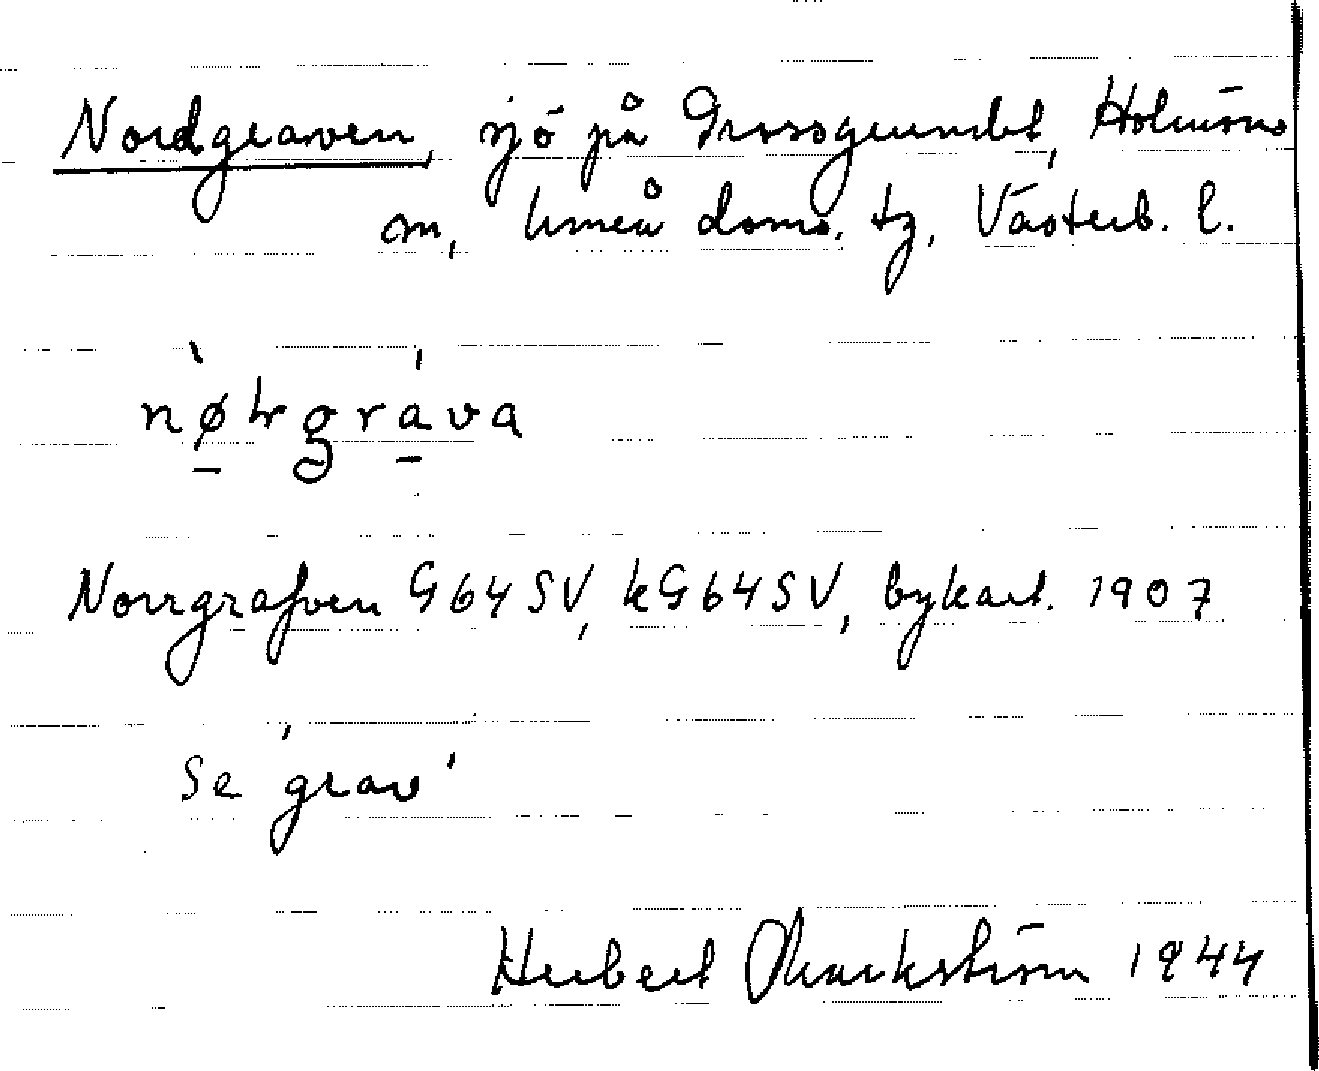 Nordgraven, sjö på Grossgrundet, Holmöns
sn, Umeå doms. tg, Västerb. l.
nøtrgrava
Norrgrafven G64SV, kG64SV, bykart. 1907
Se 'grav'
Herbert Markström 1944